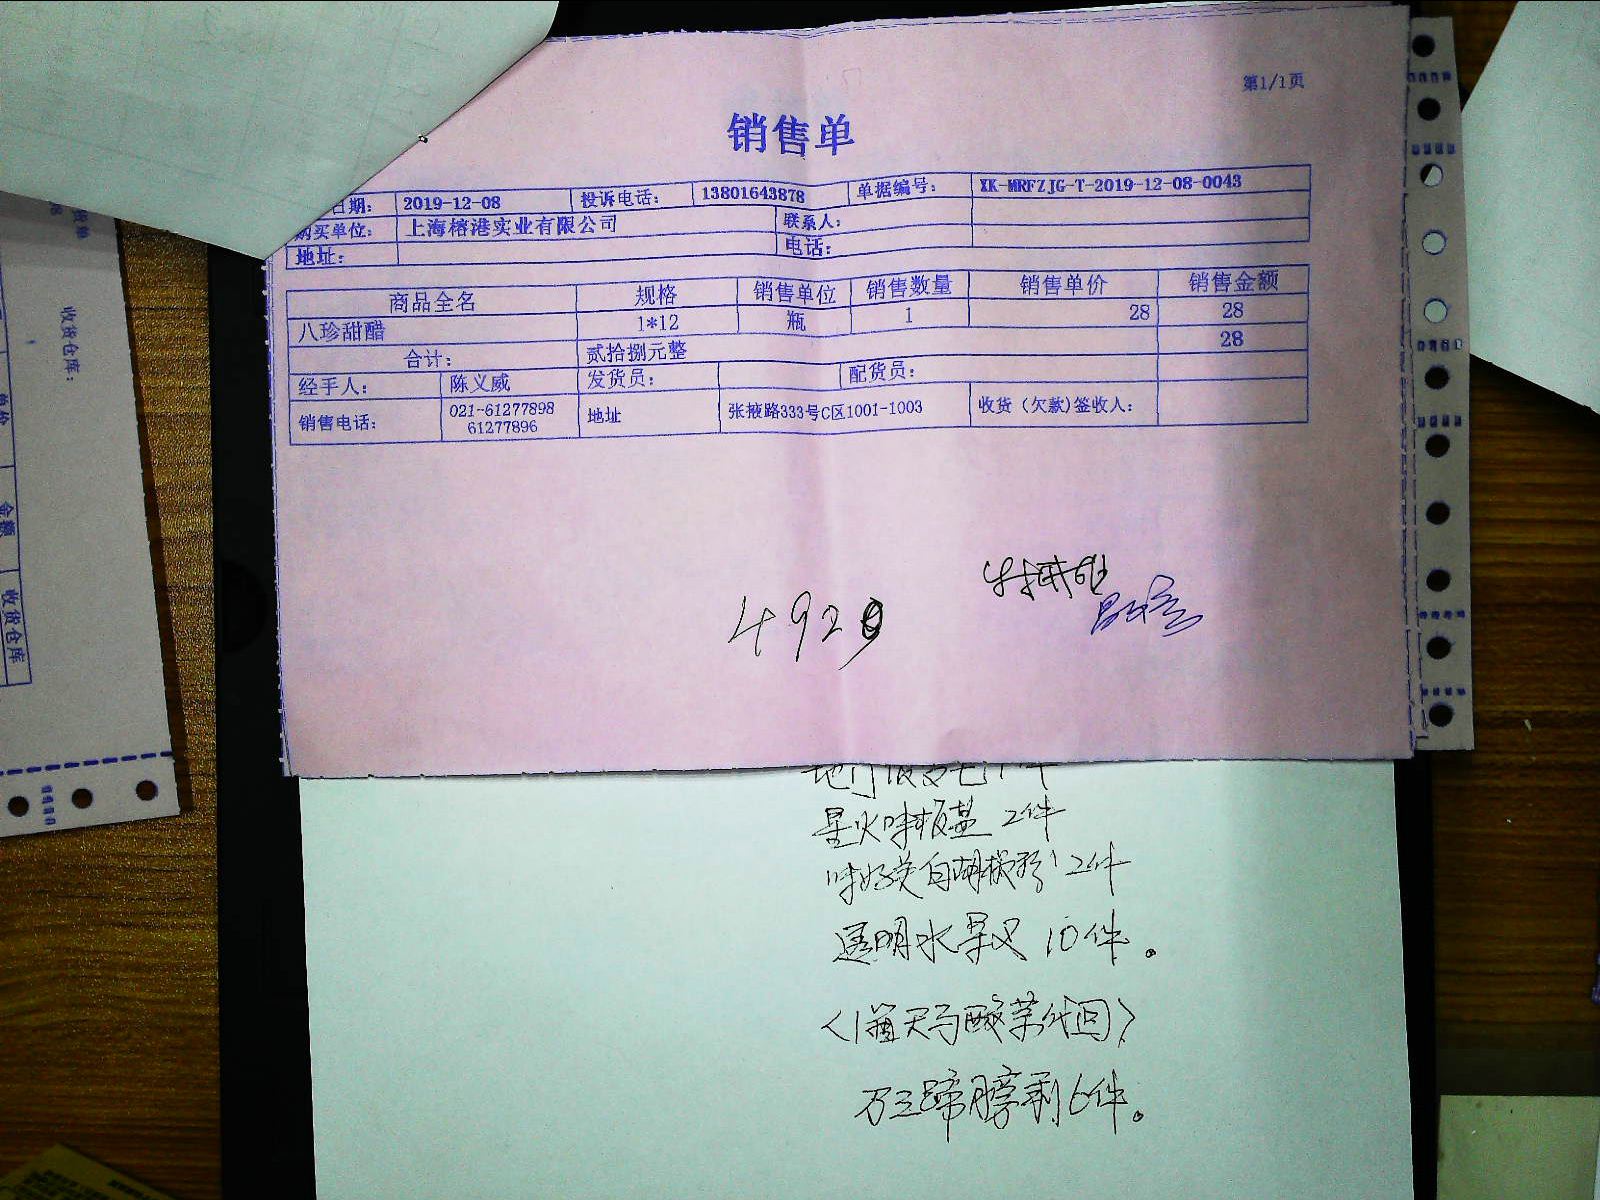 第1/1页
销售单
日期： 2019-12-08 投诉电话： 13801643878 单据编号： XK-MRFZJG-T-2019-12-08-0043
购买单位： 上海榕港实业有限公司 联系人：
地址： 电话：
商品全名 规格 销售单位 销售数量 销售单价 销售金额
八珍甜醋 1*12 瓶 1 28 28
合计： 贰拾捌元整 28
经手人： 陈义威 发货员： 配货员：
销售电话： 021-61277898 61277896 地址 张掖路333号C区1001-1003 收货（欠款）签收人：
收货仓库：
金额 收货仓库
星火味极盐 2件
味好美白胡椒粉 2件
透明水果叉 10件。
〈1箱天马酸菜代回〉
万三蹄膀剩6件。